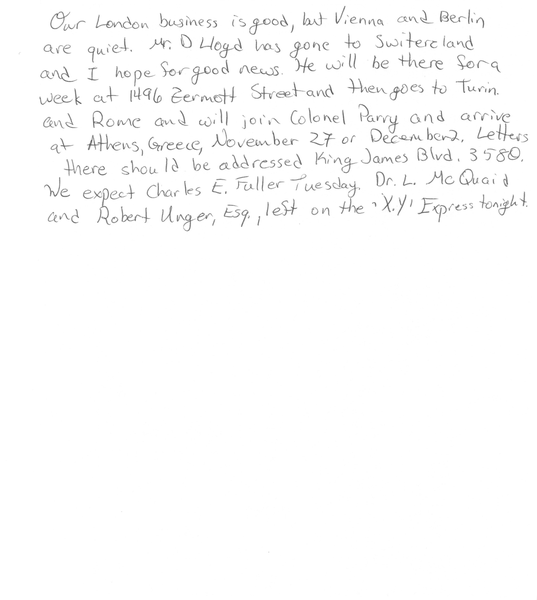 Our London business is good, but Vienna and Berlin
are quiet. Mr. D Lloyd has gone to Switercland
and I hope for good news. He will be there for a
week at 1496 Zermott Street and then goes to Turin.
and Rome and will join Colonel Parry and arrive
at Athens, Greece, November 27 or December 2. Letters
there should be addressed King James Blvd. 3580.
We expect Charles E. Fuller Tuesday. Dr. L. McQuaid
and Robert Unger, Esq., left on the 'X.Y' Express tonight.